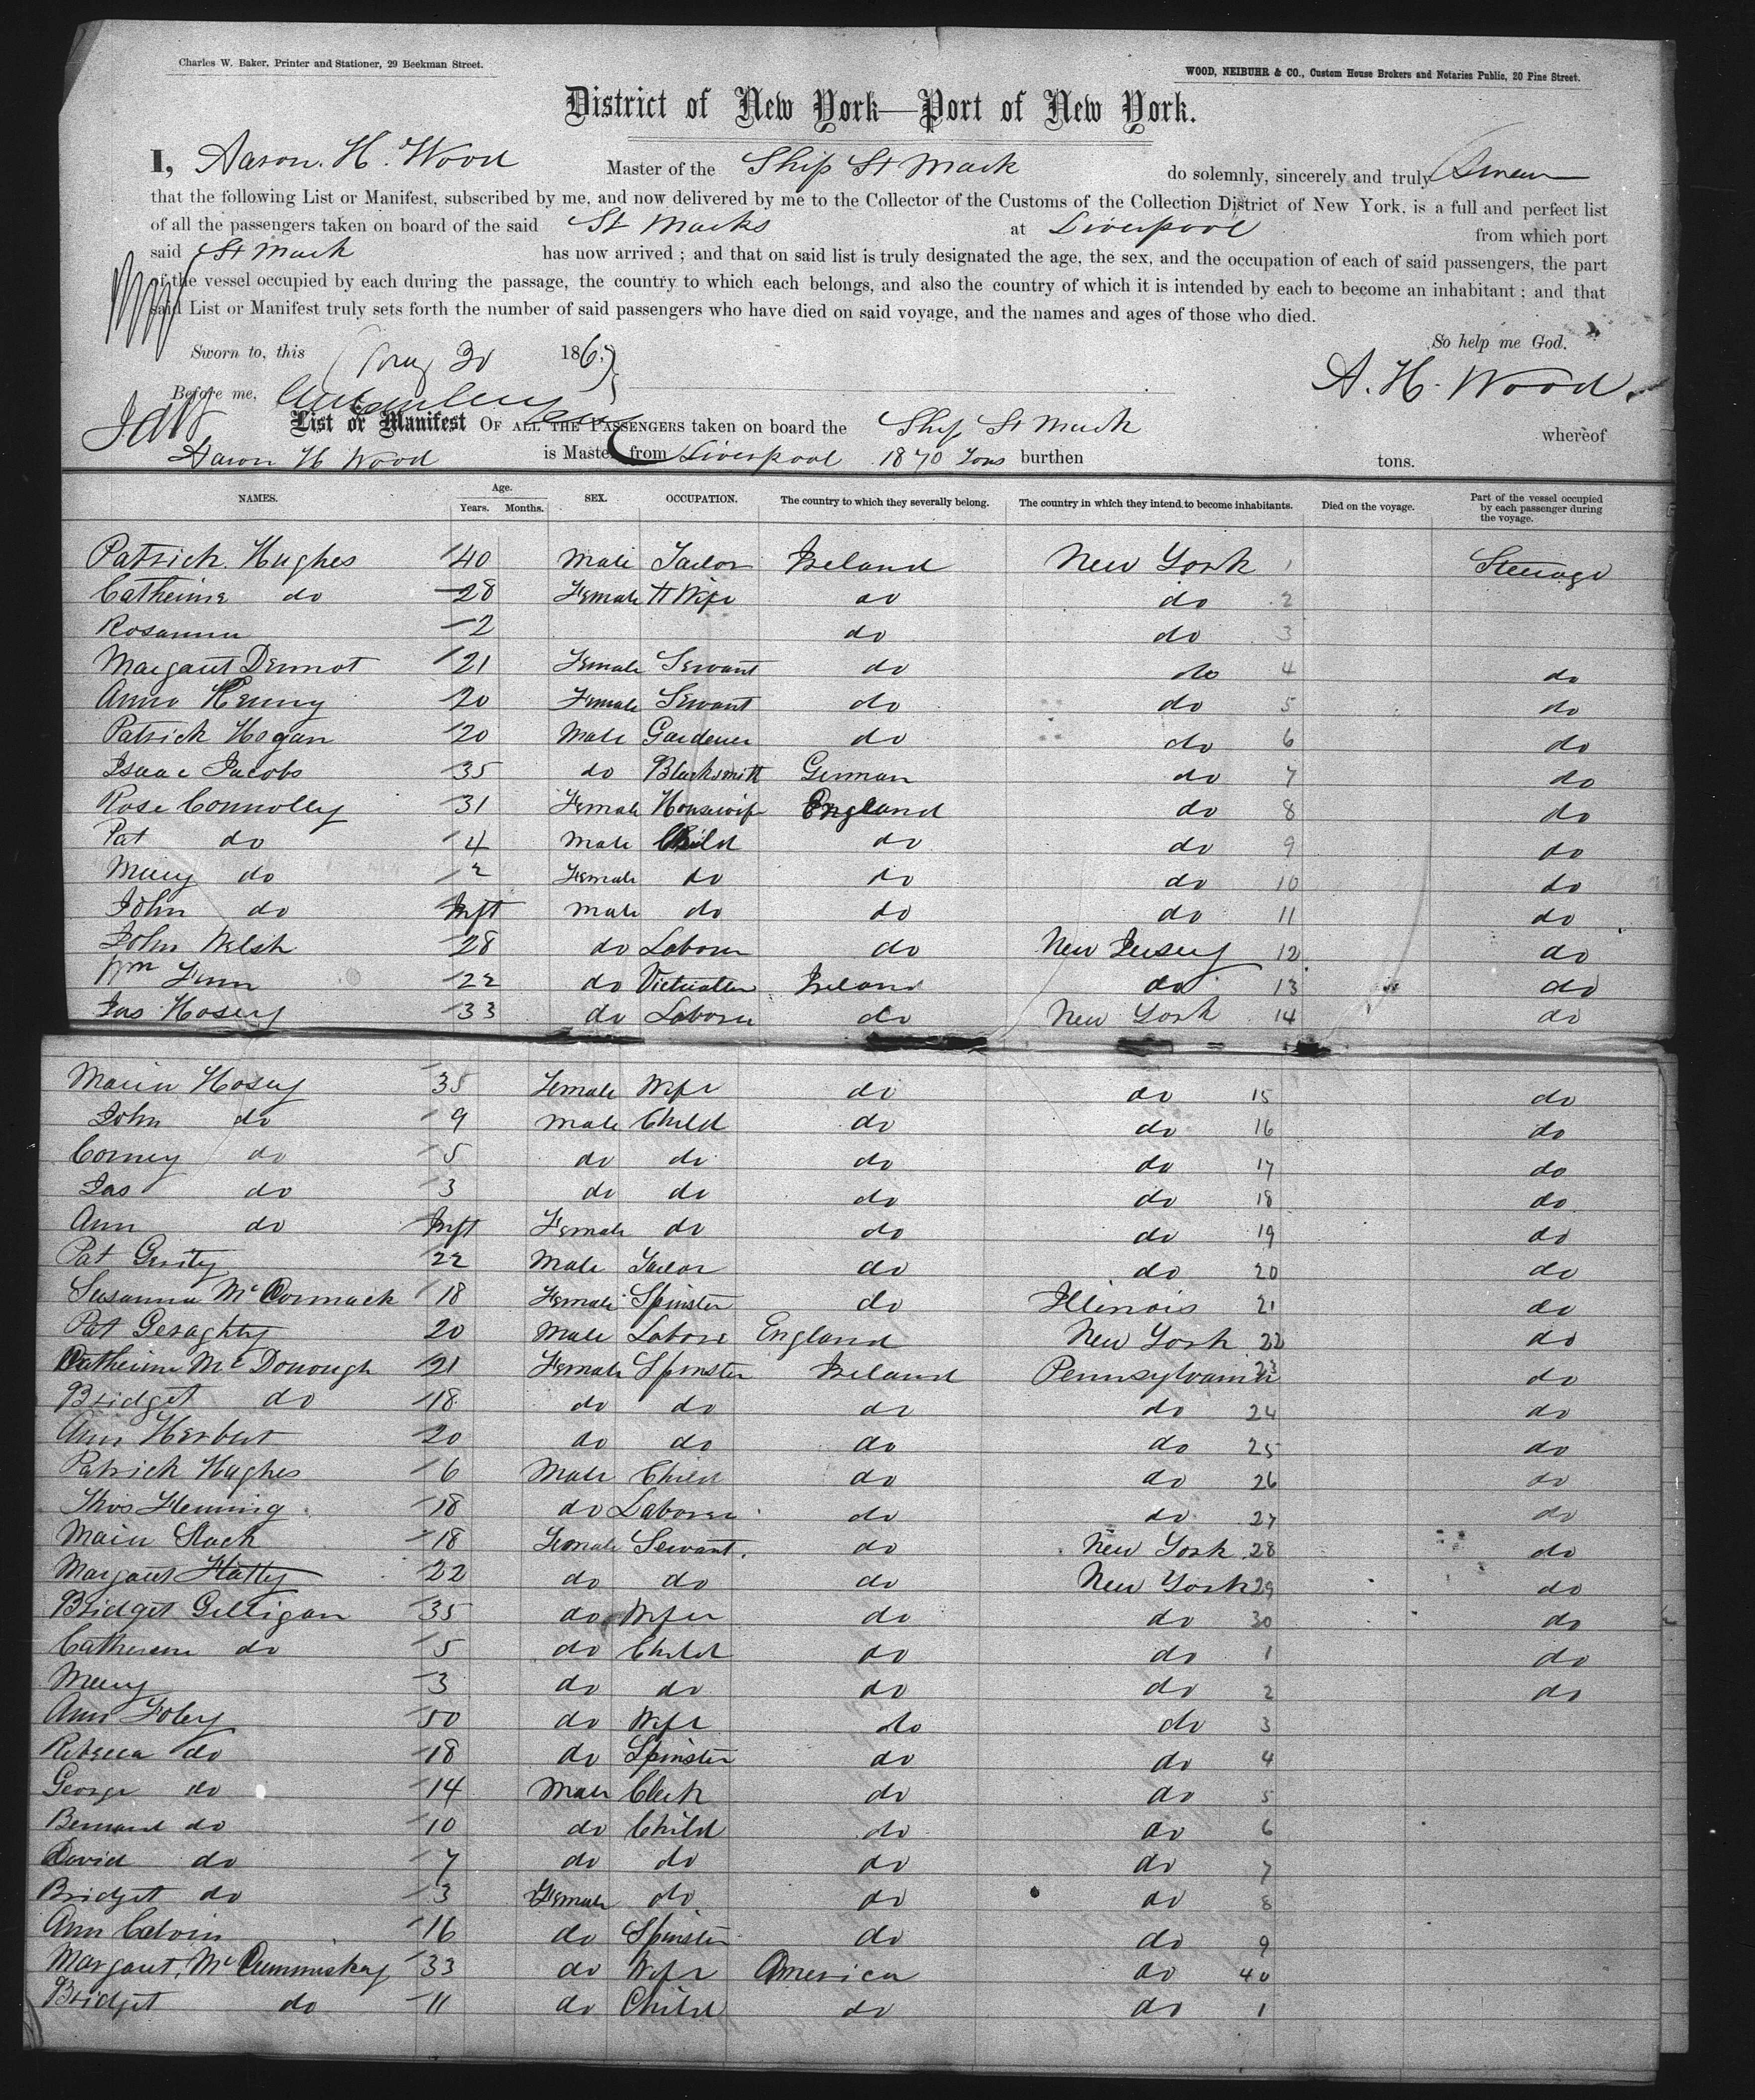 Charles W. Baker, Printer and Stationer, 29 Beekman Street.
WOOD, NEIBUHR & CO., Custom House Brokers and Notaries Public, 20 Pine Street.
District of New York—Port of New York.
I, Aaron. H. Wood Master of the Ship St Mark do solemnly, sincerely and truly Swear
that the following List or Manifest, subscribed by me, and now delivered by me to the Collector of the Customs of the Collection District of New York, is a full and perfect list
of all the passengers taken on board of the said St Marks at Liverpool from which port
said St Mark has now arrived ; and that on said list is truly designated the age, the sex, and the occupation of each of said passengers, the part
of the vessel occupied by each during the passage, the country to which each belongs, and also the country of which it is intended by each to become an inhabitant ; and that
said List or Manifest truly sets forth the number of said passengers who have died on said voyage, and the names and ages of those who died.
So help me God.
Sworn to, this 30 186
A. H. Wood.
Before me,
List or Manifest OF ALL THE PASSENGERS taken on board the Ship St Mark whereof
Aaron H Wood is Master from Liverpool 1870 Tons burthen tons.
NAMES. Age. Years. Months. SEX. OCCUPATION. The country to which they severally belong. The country in which they intend to become inhabitants. Died on the voyage. Part of the vessel occupied by each passenger during the voyage.
Patrick Hughes 40 Male Tailor Ireland New York 1 Steerage
Catherine do 28 Female H Wife do do 2
Rosanna 2 do do 3
Margaret Dermot 21 Female Servant do do 4 do
Anna Henny 20 Female Servant do do 5 do
Patrick Hogan 20 Male Gardener do do 6 do
Isaac Jacobs 35 do Blacksmith German do 7 do
Rose Connolly 31 Female Housewife England do 8 do
Pat do 4 Male Child do do 9 do
Mary do 2 Female do do do 10 do
John do Inft Male do do do 11 do
John Welsh 28 do Laborer do New Jersey 12 do
Wm Finn 22 do Victualler Ireland do 13 do
Jas Hosey 33 do Laborer do New York 14 do
Maria Hosey 35 Female Wife do do 15 do
John do 9 Male Child do do 16 do
Corney do 5 do do do do 17 do
Jas do 3 do do do do 18 do
Ann do Inft Female do do do 19 do
Pat Gerity 22 Male Tailor do do 20 do
Susanna McCormack 18 Female Spinster do Illinois 21 do
Pat Geraghty 20 Male Labore England New York 22 do
Catherine McDonough 21 Female Spinster Ireland Pennsylvania 23 do
Bridget do 18 do do do do 24 do
Ann Herbert 20 do do do do 25 do
Patrick Hughes 6 Male Child do do 26 do
Thos Fleming 18 do Laborer do do 27 do
Maria Slack 18 Female Servant. do New York 28 do
Margaret Flatty 22 do do do New York 29 do
Bridget Gilligan 35 do Wife do do 30 do
Catherine do 5 do Child do do 1 do
Mary 3 do do do do 2 do
Ann Foley 50 do Wife do do 3
Rebecca do 18 do Spinster do do 4
George do 14 Male Clerk do do 5
Bernard do 10 do Child do do 6
David do 7 do do do do 7
Bridget do 3 Female do do do 8
Ann Colvin 16 do Spinster do do 9
Margaret McCummiskey 33 do Wife America do 40
Bridget do 11 do Child do do 1